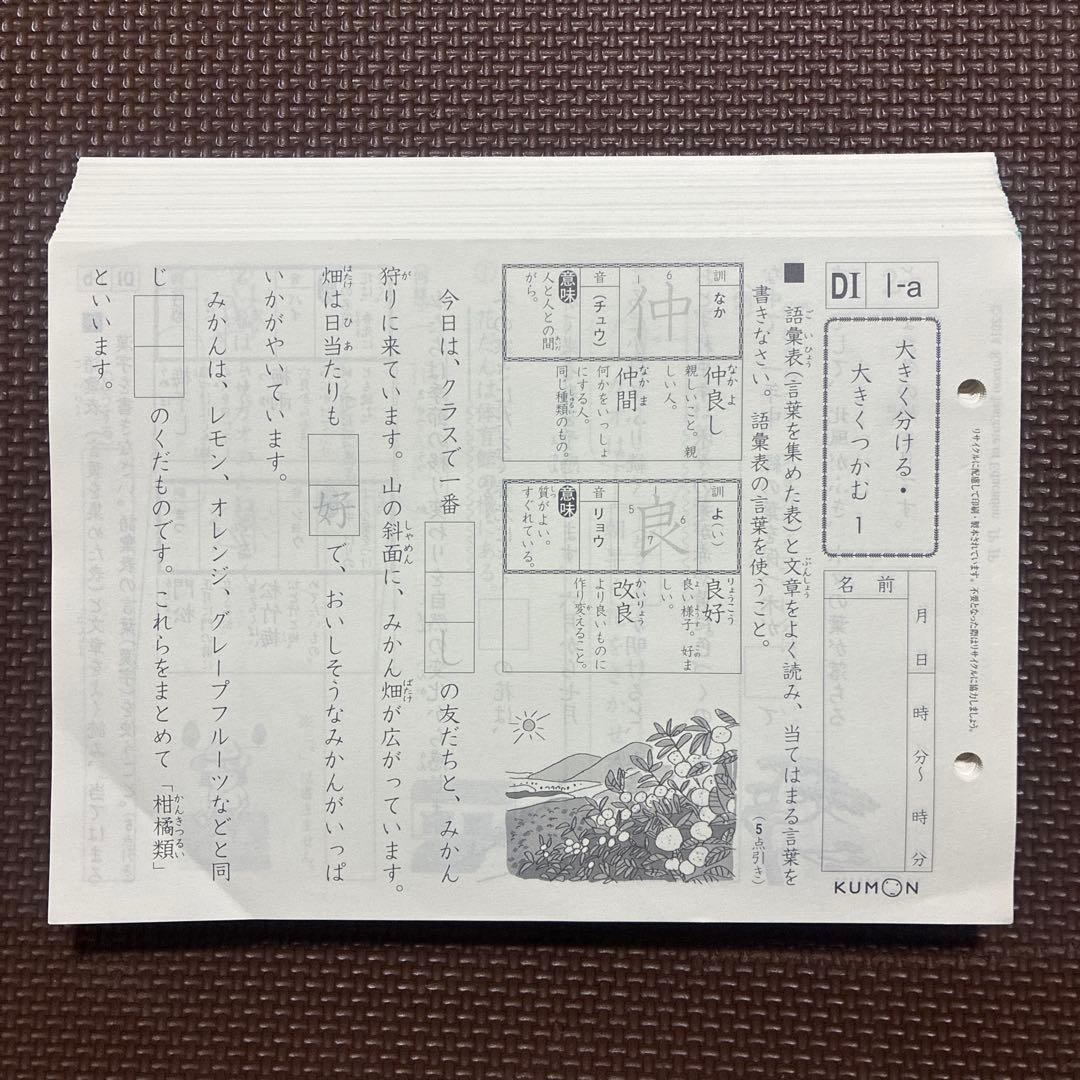 DI 1-a
大きく分ける・
大きくつかむ 1
月 日 時 分〜 時 分
名前
KUMON
リサイクルに配慮して印刷・製本されています。不要となった際はリサイクルに協力しましょう。
■ 語彙表(言葉を集めた表)と文章をよく読み、当てはまる言葉を
書きなさい。語彙表の言葉を使うこと。
(5点引き)
訓 なか
仲
音 (チュウ)
意味
人と人との間
がら。
仲良し
親しいこと。親
しい人。
仲間
何かをいっしょ
にする人。
同じ種類のもの。
訓 よ(い)
良
音 リョウ
意味
質がよい。
すぐれている。
良好
良い様子。好ま
しい。
改良
より良いものに
作り変えること。
今日は、クラスで一番 し の友だちと、みかん
狩りに来ています。山の斜面に、みかん畑が広がっています。
畑は日当たりも 好 で、おいしそうなみかんがいっぱ
いかがやいています。
みかんは、レモン、オレンジ、グレープフルーツなどと同
じ のくだものです。これらをまとめて「柑橘類」
といいます。